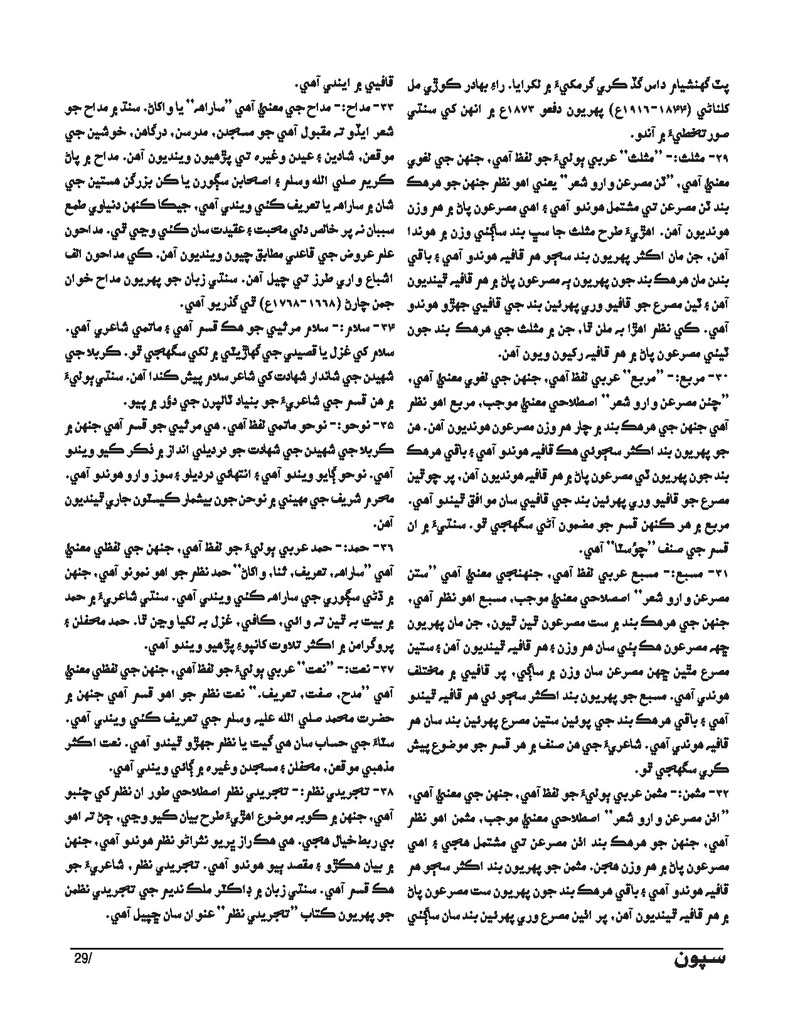 پٽ گهنشيام داس گڏ ڪري گرمکيءَ ۾ لکرايا. راءِ بهادر ڪوڙي مل
کلناڻي (۱۸۴۴-۱۹۱۶ع) پهريون دفعو ۱۸۷۳ع ۾ انهن کي سنڌي
صورتخطيءَ ۾ آندو.
۲۹- مثلث:- ”مثلث“ عربي ٻوليءَ جو لفظ آهي، جنهن جي لغوي
معنيٰ آهي، ”ٽن مصرعن وارو شعر“ يعني اهو نظم جنهن جو هرهڪ
بند ٽن مصرعن تي مشتمل هوندو آهي ۽ اهي مصرعون پاڻ ۾ هم وزن
هونديون آهن. اهڙيءَ طرح مثلث جا سڀ بند ساڳئي وزن ۾ هوندا
آهن، جن مان اڪثر پهريون بند سڄو هم قافيه هوندو آهي ۽ باقي
بندن مان هرهڪ بند جون پهريون ٻه مصرعون پاڻ ۾ هم قافيه ٿينديون
آهن ۽ ٽين مصرع جو قافيو وري پهرئين بند جي قافيي جهڙو هوندو
آهي. ڪي نظم اهڙا به ملن ٿا، جن ۾ مثلث جي هرهڪ بند جون
ٽيئي مصرعون پاڻ ۾ هم قافيه رکيون ويون آهن.
۳۰- مربع:- ”مربع“ عربي لفظ آهي، جنهن جي لغوي معنيٰ آهي،
”چئن مصرعن وارو شعر“ اصطلاحي معنيٰ موجب، مربع اهو نظم
آهي جنهن جي هرهڪ بند ۾ چار هم وزن مصرعون هونديون آهن. هن
جو پهريون بند اڪثر سڄوئي هڪ قافيه هوندو آهي ۽ باقي هرهڪ
بند جون پهريون ٽي مصرعون پاڻ ۾ هم قافيه هونديون آهن، پر چوٿين
مصرع جو قافيو وري پهرئين بند جي قافيي سان موافق ٿيندو آهي.
مربع ۾ هر ڪنهن قسم جو مضمون آڻي سگهجي ٿو. سنڌيءَ ۾ ان
قسم جي صنف ”چؤسٽا“ آهي.
۳۱- مسبع:- مسبع عربي لفظ آهي، جنهنجي معنيٰ آهي ”ستن
مصرعن وارو شعر“ اصصلاحي معنيٰ موجب، مسبع اهو نظم آهي،
جنهن جي هرهڪ بند ۾ ست مصرعون ٿين ٿيون، جن مان پهريون
ڇهه مصرعون هڪٻئي سان هم وزن ۽ هم قافيه ٿينديون آهن ۽ ستين
مصرع مٿين ڇهن مصرعن سان وزن ۾ ساڳي، پر قافيي ۾ مختلف
هوندي آهي. مسبع جو پهريون بند اڪثر سڄو ئي هم قافيه ٿيندو
آهي ۽ باقي هرهڪ بند جي پوئين ستين مصرع پهرئين بند سان هم
قافيه هوندي آهي. شاعريءَ جي هن صنف ۾ هر قسم جو موضوع پيش
ڪري سگهجي ٿو.
۳۲- مثمن:- مثمن عربي ٻوليءَ جو لفظ آهي، جنهن جي معنيٰ آهي،
”اٺن مصرعن وارو شعر“ اصطلاحي معنيٰ موجب، مثمن اهو نظم
آهي، جنهن جو هرهڪ بند اٺن مصرعن تي مشتمل هجي ۽ اهي
مصرعون پاڻ ۾ هم وزن هجن. مثمن جو پهريون بند اڪثر سڄو هم
قافيه هوندو آهي ۽ باقي هرهڪ بند جون پهريون ست مصرعون پاڻ
۾ هم قافيه ٿينديون آهن، پر اٺين مصرع وري پهرئين بند سان ساڳئي
قافيي ۾ ايندي آهي.
۳۳- مداح:- مداح جي معنيٰ آهي ”ساراهه“ يا واکاڻ. سنڌ ۾ مداح جو
شعر ايڏو ته مقبول آهي جو مسجدن، مدرسن، درگاهن، خوشين جي
موقعن، شادين ۽ عيدن وغيره تي پڙهيون وينديون آهن. مداح ۾ پاڻ
ڪريم صلي الله وسلم ۽ اصحابن سڳورن يا ڪن بزرگن هستين جي
شان ۾ ساراهه يا تعريف ڪئي ويندي آهي، جيڪا ڪنهن دنياوي طمع
سببان نه پر خالص دلي محبت ۽ عقيدت سان ڪئي وڃي ٿي. مداحون
علم عروض جي قاعدي مطابق چيون وينديون آهن. ڪي مداحون الف
اشباع واري طرز تي چيل آهن. سنڌي زبان جو پهريون مداح خوان
جمن چارڻ (۱۶۶۸-۱۷۶۸ع) ٿي گذريو آهي.
۳۴- سلام:- سلام مرثيي جو هڪ قسم آهي ۽ ماتمي شاعري آهي.
سلام کي غزل يا قصيدي جي گهاڙيٽي ۾ لکي سگهجي ٿو. ڪربلا جي
شهيدن جي شاندار شهادت کي شاعر سلام پيش ڪندا آهن. سنڌي ٻوليءَ
۾ هن قسم جي شاعريءَ جو بنياد ٽالپرن جي دؤر ۾ پيو.
۳۵- نوحو:- نوحو ماتمي لفظ آهي. هي مرثيي جو قسم آهي جنهن ۾
ڪربلا جي شهيدن جي شهادت جو درديلي انداز ۾ ذڪر ڪيو ويندو
آهي. نوحو ڳايو ويندو آهي ۽ انتهائي درديلو ۽ سوز وارو هوندو آهي.
محرم شريف جي مهيني ۾ نوحن جون بيشمار ڪيسٽون جاري ٿينديون
آهن.
۳۶- حمد:- حمد عربي ٻوليءَ جو لفظ آهي، جنهن جي لفظي معنيٰ
آهي ”ساراهه، تعريف، ثنا، واکاڻ“ حمد نظم جو اهو نمونو آهي، جنهن
۾ ڌڻي سڳوري جي ساراهه ڪئي ويندي آهي. سنڌي شاعريءَ ۾ حمد
۾ بيت به ٿين ته وائي، ڪافي، غزل به لکيا وڃن ٿا. حمد محفلن ۽
پروگرامن ۾ اڪثر تلاوت کانپوءِ پڙهيو ويندو آهي.
۳۷- نعت:- ”نعت“ عربي ٻوليءَ جو لفظ آهي، جنهن جي لفظي معنيٰ
آهي ”مدح، صفت، تعريف.“ نعت نظم جو اهو قسم آهي جنهن ۾
حضرت محمد صلي الله عليه وسلم جي تعريف ڪئي ويندي آهي.
سٽاءَ جي حساب سان هي گيت يا نظم جهڙو ٿيندو آهي. نعت اڪثر
مذهبي موقعن، محفلن ۽ مسجدن وغيره ۾ ڳائي ويندي آهي.
۳۸- تجريدي نظم:- تجريدي نظم اصطلاحي طور ان نظم کي چئبو
آهي، جنهن ۾ ڪوبه موضوع اهڙيءَ طرح بيان ڪيو وڃي، ڄڻ ته اهو
بي ربط خيال هجي. هي هڪ راز ڀريو نثراڻو نظم هوندو آهي، جنهن
۾ بيان هڪڙو ۽ مقصد ٻيو هوندو آهي. تجريدي نظم، شاعريءَ جو
هڪ قسم آهي. سنڌي زبان ۾ ڊاڪٽر ملڪ نديم جي تجريدي نظمن
جو پهريون ڪتاب ”تجريدي نظم“ عنوان سان ڇپيل آهي.
سپون
29/